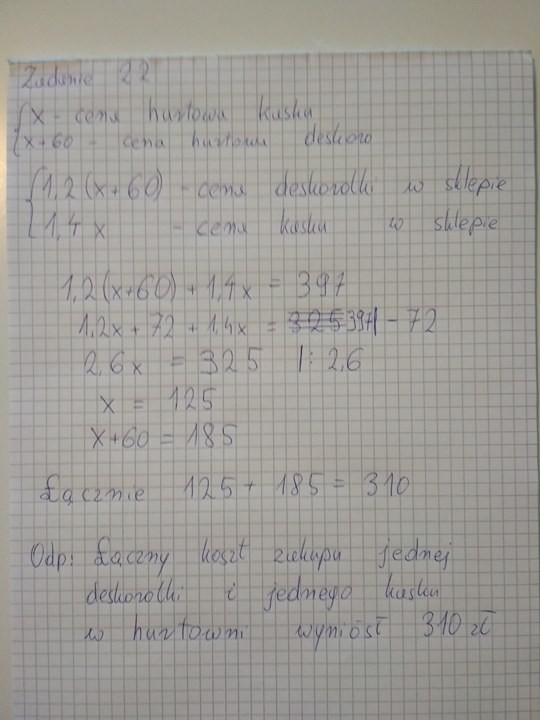 Zadanie 22
{ x - cena hurtowa kasku
x+60 - cena hurtowa deskoro
{ 1,2(x+60) - cena deskorolki w sklepie
1,4x - cena kasku w sklepie
1,2(x+60) + 1,4x = 397
1,2x + 72 + 1,4x = 325 397 | - 72
2,6x = 325 |: 2,6
x = 125
x+60 = 185
Łącznie 125 + 185 = 310
Odp: Łączny koszt zakupu jednej
deskorolki i jednego kasku
w hurtowni wyniósł 310 zł